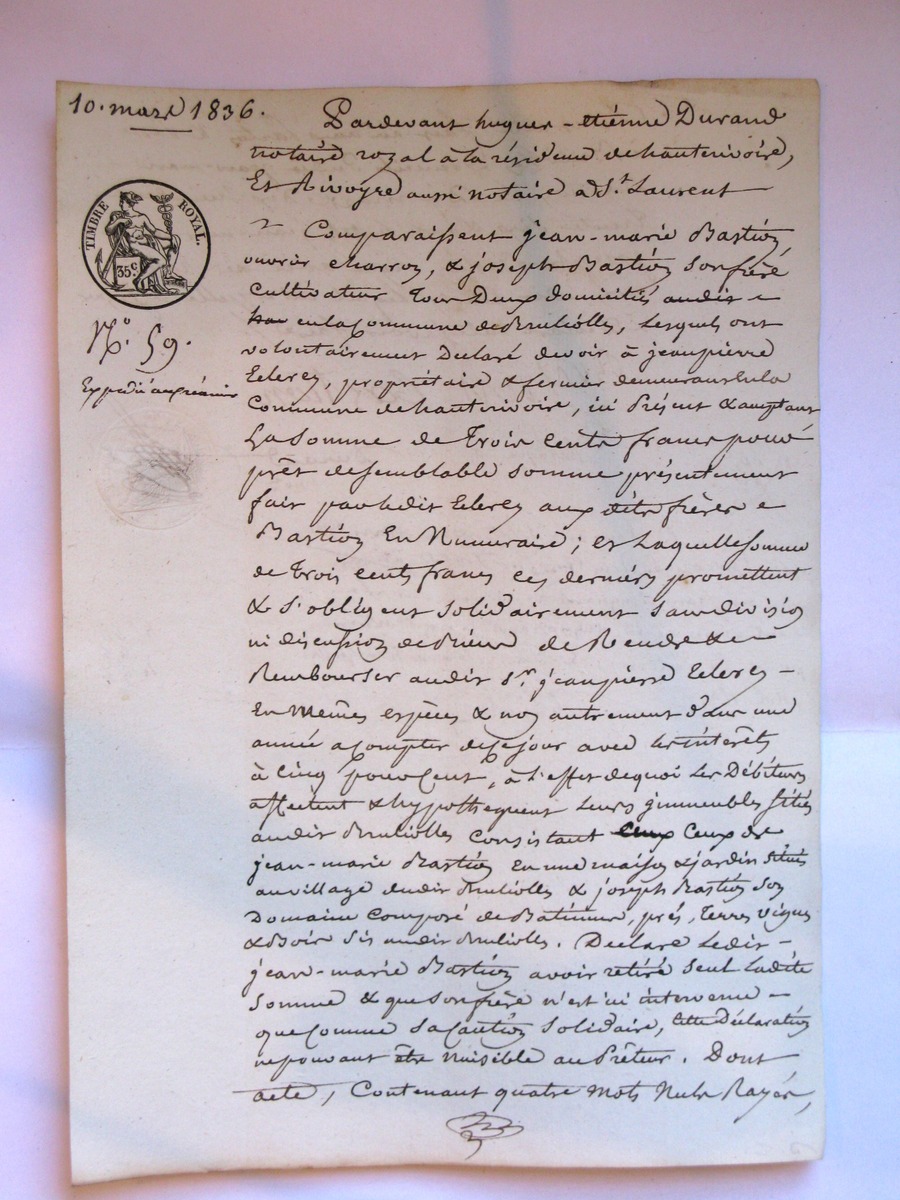 10. mars 1836.
Pardevant hugues-etiénne Durand
notaire royal à la résidence de hauterivoire,
Et Rivoyre aussi notaire a St. Laurent
TIMBRE ROYAL.
35c.
No. 59.
Expédié au créancier
Comparaissent jean-marie Bastion
ouvrier charron, & joseph Bastion son frère
Cultivateur tous Deux domiciliés audit
en la Commune de Bruliolles, lesquels ont
volontairement Declaré devoir à jeanpierre
propriétaire & fermier demeurant en la
Commune de hauterivoire, ici Présent & acceptant
La Somme de Trois cents francs pour
prêt de semblable somme présentement
fait par ledit aux dits frères
Bastion En Numeraire; et Laquelle somme
de Trois cents francs ces derniers promettent
& s'obligent solidairement sans division
ni discussion de Rendre &
Rembourser audit Sr. jeanpierre
En Mêmes espèces & non autrement dans une
année a Compter de ce jour avec les interêts
à Cinq pour Cent, à l'effet de quoi Les Débiteurs
affectent & hypothequent Leurs jmmeubles situés
audit Brulliolles consistant Ceux de
jean-marie Bastion En une maison & jardin situés
au village dudit Brulliolles & joseph Bastion son
Domaine Composé de Batimens, prés, Terres vignes
& Bois sis audit Brulliolles. Declare Ledit
jean-marie Bastion avoir retiré seul Ladite
somme & que son frère n'est ici intervenu
que Comme sa Caution solidaire, Cette Déclaration
ne pouvant être Nuisible au Prêteur. Dont
acte, Contenant quatre mots Nuls Rayés,